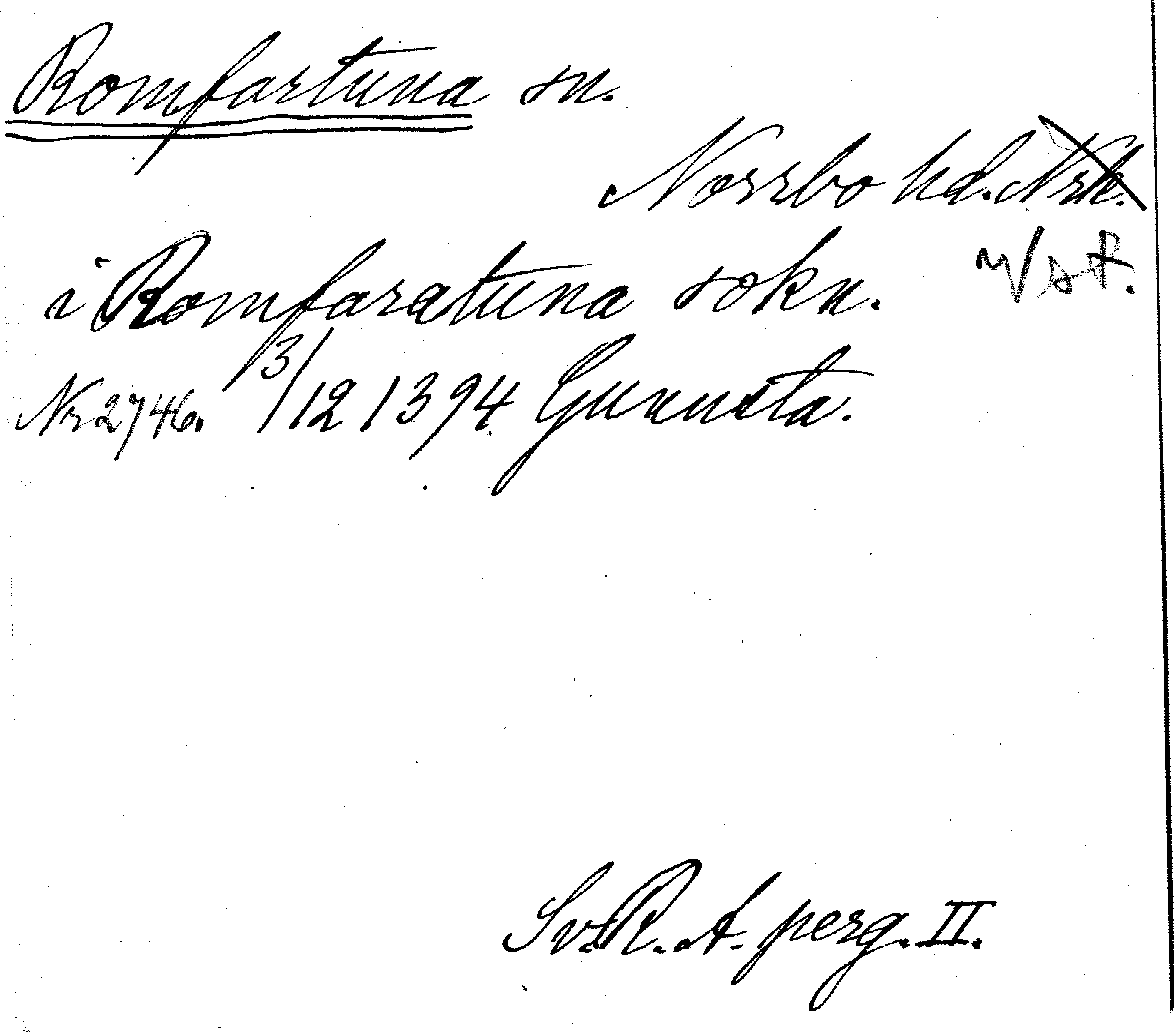 Romfartuna sn.
Norrbo hd. Nrk.
Vst.
i Romfaratuna sokn.
Nr 2746. 3/12 1394 Gunnsta.
Sv. R. A. perg. II.